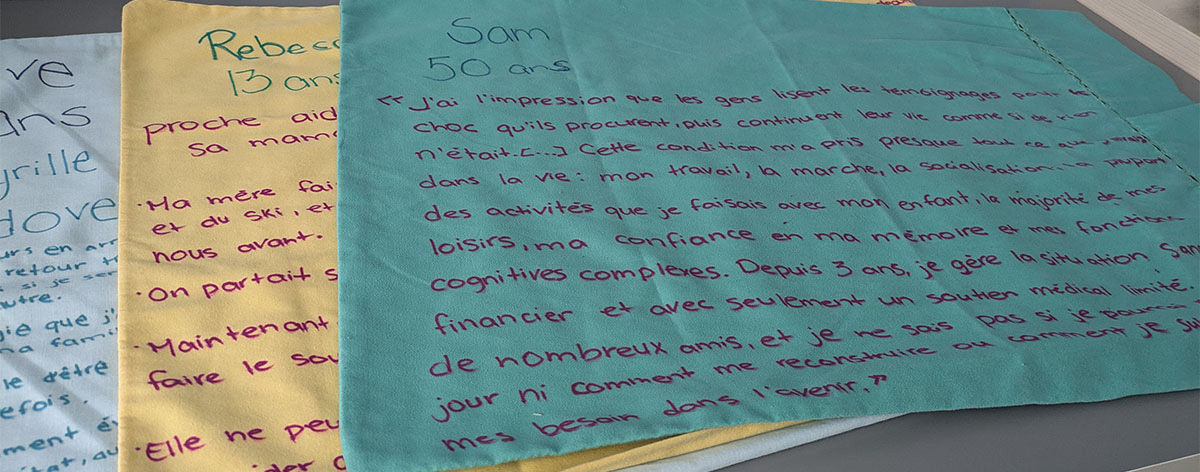 ve
ans
yrille
dove
urs en arr
retour t
si je se
utre.
gie que j'
ma fami
le d'être
efois.
ment év
tat, au
Rebecc
13 ans
proche aid
sa mam
• Ma mère fai
et du ski, et
nous avant.
• On partait s
• Maintenant
faire le sou
• Elle ne peu
ider
Sam
50 ans
"J'ai l'impression que les gens lisent les témoignages pour
choc qu'ils procurent, puis continuent leur vie comme si de rien
n'était. [...] Cette condition m'a pris presque tout ce que
dans la vie : mon travail, la marche, la socialisation, la plupart
des activités que je faisais avec mon enfant, la majorité de mes
loisirs, ma confiance en ma mémoire et mes fonctions
cognitives complexes. Depuis 3 ans, je gère la situation sans
financier et avec seulement un soutien médical limité.
de nombreux amis, et je ne sais pas si je pourrai
jour ni comment me reconstruire ou comment je
mes besoin dans l'avenir."